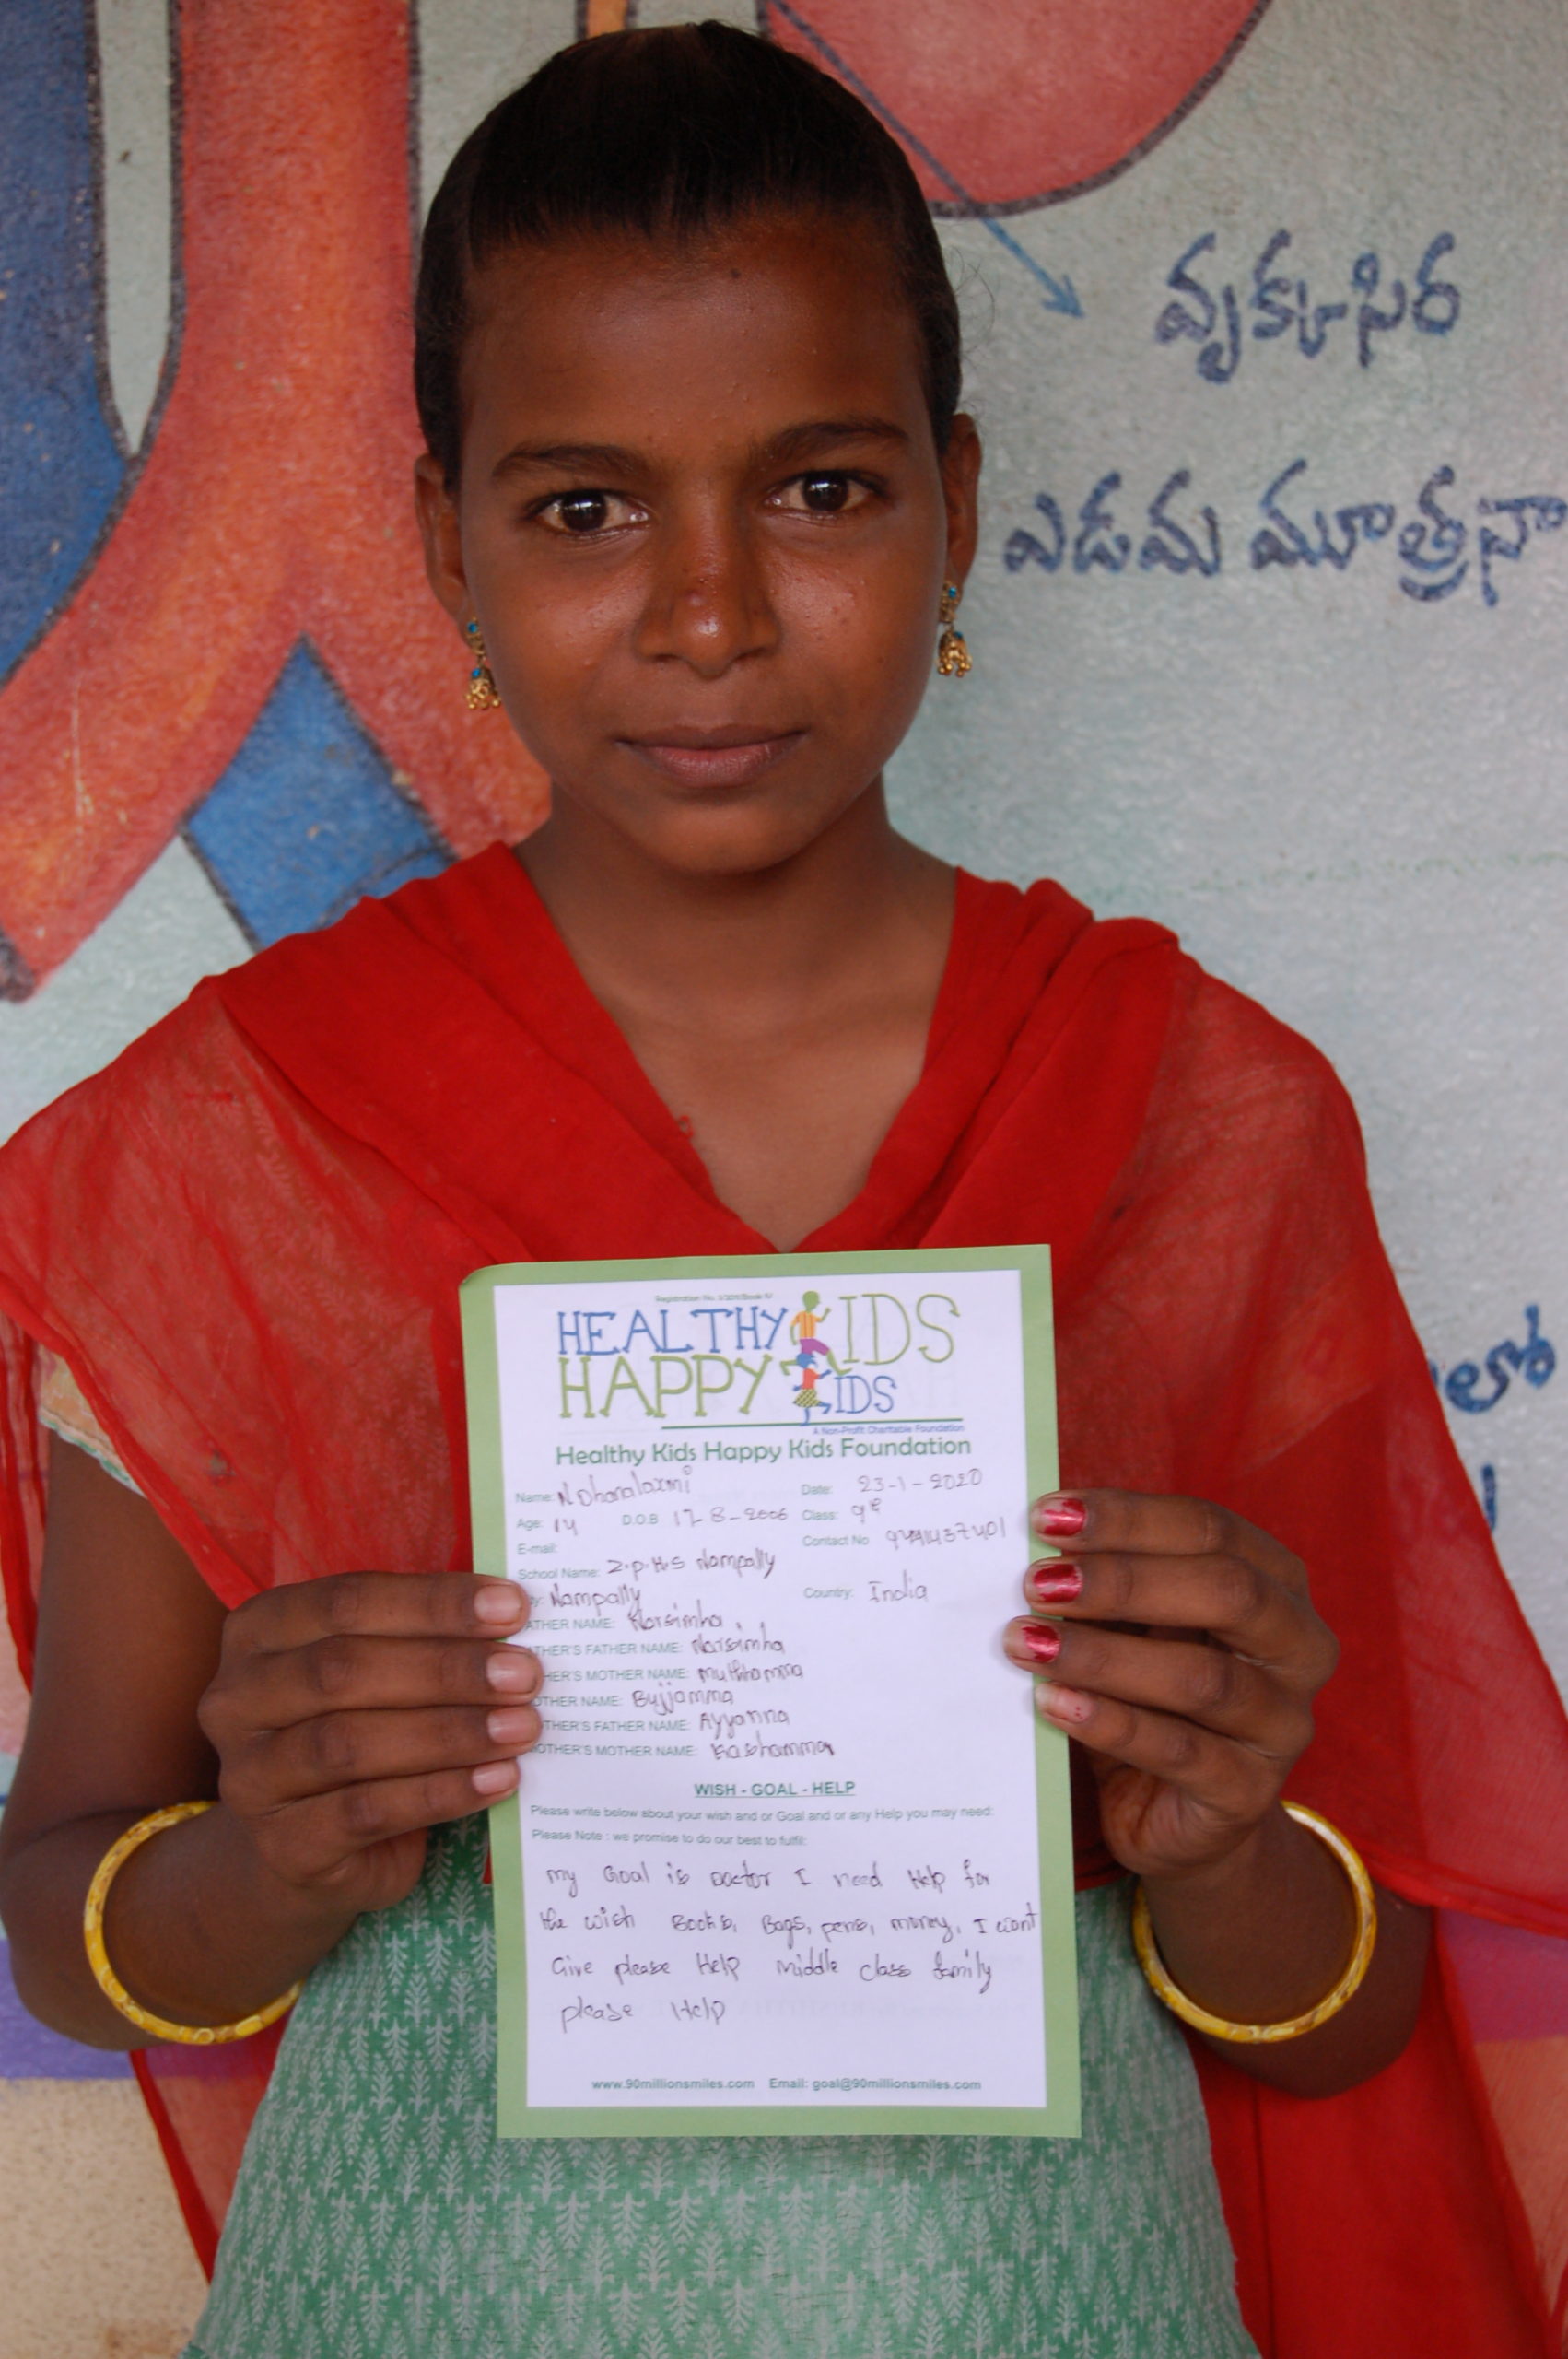 వృక్కసిర
ఎడమ మూత్రనా
లలో
HEALTHY KIDS
HAPPY KIDS
A Non-Profit Charitable Foundation
Healthy Kids Happy Kids Foundation
Name: N Dhanalaxmi Date: 23-1-2020
Age: 14 D.O.B 17-8-2006 Class: 9th
E-mail: Contact No
School Name: Z.P.H.S Nampally
Nampally Country: India
ATHER NAME: Narsimha
THER'S FATHER NAME: Narsimha
HER'S MOTHER NAME: Muthamma
OTHER NAME: Bujjamma
THER'S FATHER NAME: Ayyanna
OTHER'S MOTHER NAME: Kashamma
WISH - GOAL - HELP
Please write below about your wish and or Goal and or any Help you may need:
Please Note : we promise to do our best to fulfil:
my Goal is Doctor I need Help for
the wish Books, Bags, pens, money, I want
Give please Help middle class family
please Help
www.90millionsmiles.com Email: goal@90millionsmiles.com